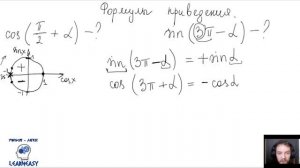 Формулы приведения.
cos(π/2 + α) - ? sin(3π - α) - ?
sin x
sin(3π - α) = + sin α
cos x
cos(3π + α) = - cos α
LEARNEASY